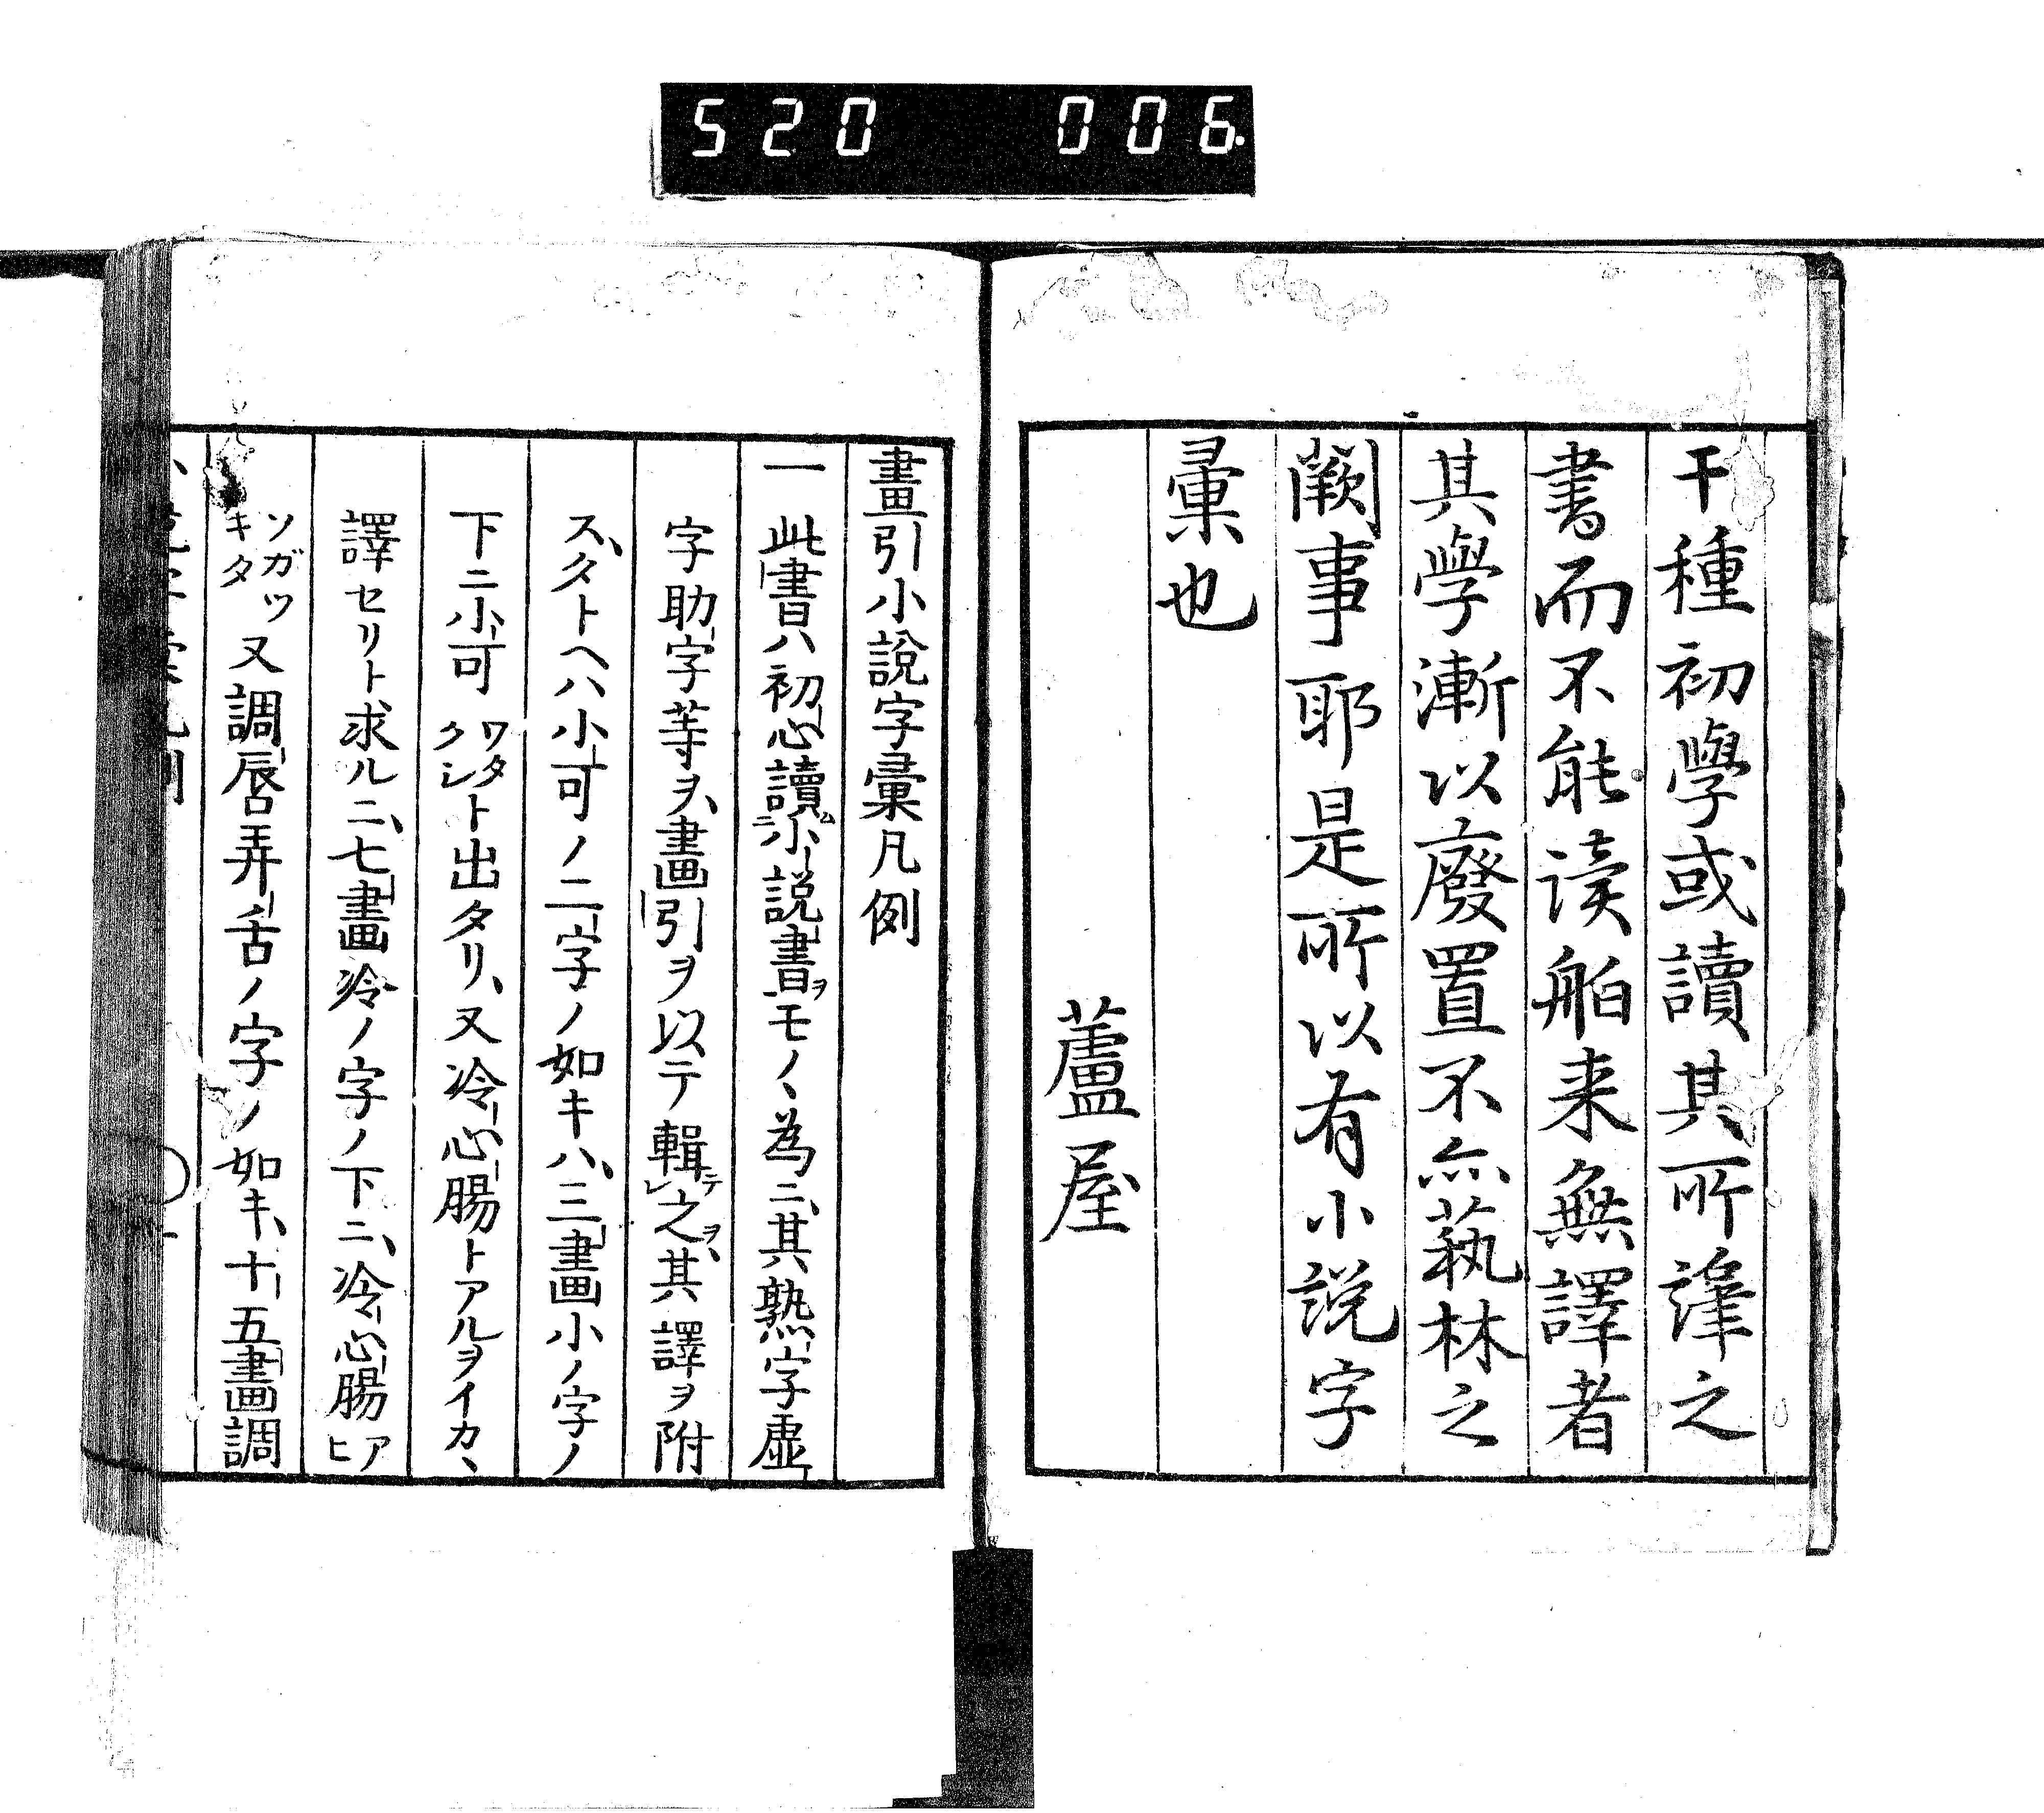 520 006.
干種初學或讀其所譯之
書而不能读舶来無譯者
其學漸以廢置不亦藝林之
闕事耶是所以有小説字
彙也
蘆屋
畫引小說字彙凡例
一 此書ハ初心讀ム二小説書ヲ一モノヽ為ニ、其熟字虚
字助字等ヲ、畫引ヲ以テ輯テレ之ヲ、其譯ヲ附
ス、タトヘハ、小可ノ二字ノ如キハ、三畫小ノ字ノ
下ニ小可 ワタクシト出タリ、又冷心腸トアルヲイカヽ
譯セリト、求ルニ、七畫冷ノ字ノ下ニ、冷心腸 アヒ
ソガツキタ 又調唇弄舌ノ字ノ如キ、十五畫調